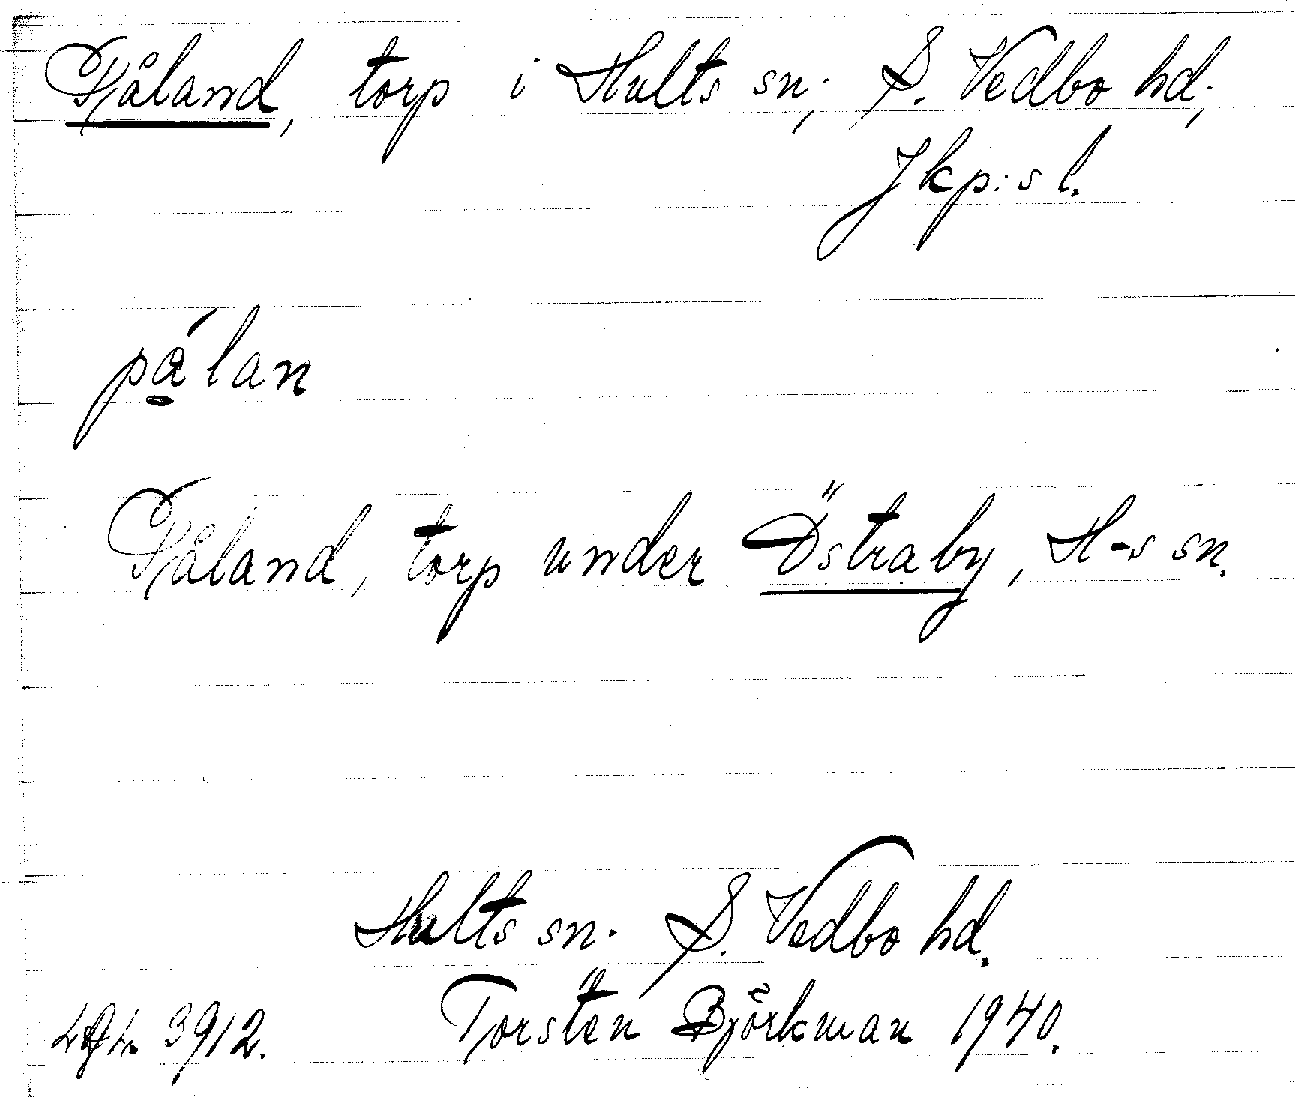 Påland, torp i Hults sn, S. Vedbo hd,
Jkp:s l.
pá̱lan
Påland, torp under Östraby, H-s sn.
Hults sn. S. Vedbo hd.
3912. Torsten Björkman 1940.